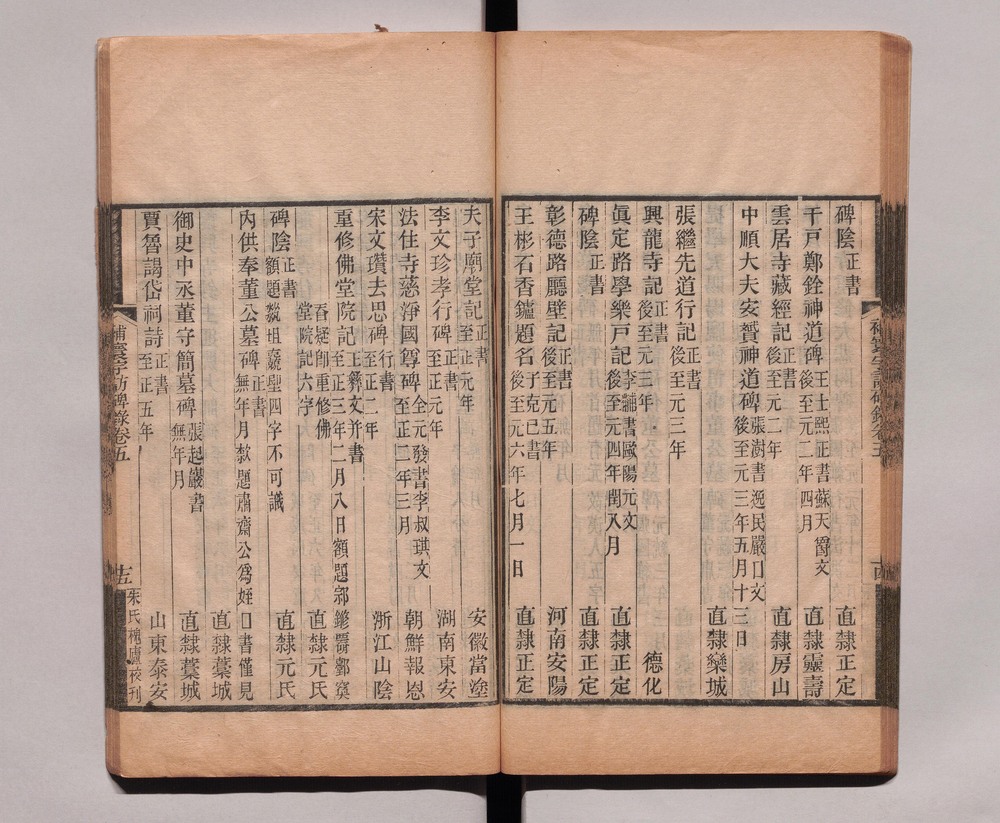 碑陰 正書 直隸正定
干戸鄭銓神道碑 王士熙正書蘇天爵文 後至元二年四月 直隸靈壽
雲居寺藏經記 正書 後至元二年 直隸房山
中順大夫安贇神道碑 張澍書 逸民嚴口文 後至元三年五月十三日 直隸欒城
張繼先道行記 正書 後至元三年
興龍寺記 正書 後至元三年 德化
眞定路學樂戸記 李黼書歐陽元文 後至元四年閏八月 直隸正定
碑陰 正書 直隸正定
彰德路廳壁記 正書 後至元五年 河南安陽
王彬石香鑪題名 子克己書 後至元六年七月一日 直隸正定
夫子廟堂記 正書 至正元年 安徽當塗
李文珍孝行碑 正書 至正元年 湖南東安
法住寺慈淨國尊碑 全元發書李叔琪文 至正二年三月 朝鮮報恩
宋文瓚去思碑 行書 至正二年 浙江山陰
重修佛堂院記 王粹文并書 至正三年二月八日額題
堂院記六字 直隸元氏
碑陰 正書 額題 四字不可識 直隸元氏
内供奉董公墓碑 正書 無年月 題肅齋公爲姪口書僅見 直隸藁城
御史中丞董守簡墓碑 張起巖書 無年月 直隸藁城
賈魯謁岱祠詩 正書 至正五年 山東泰安
補寰宇訪碑錄卷五
十五
朱氏槐廬校刊